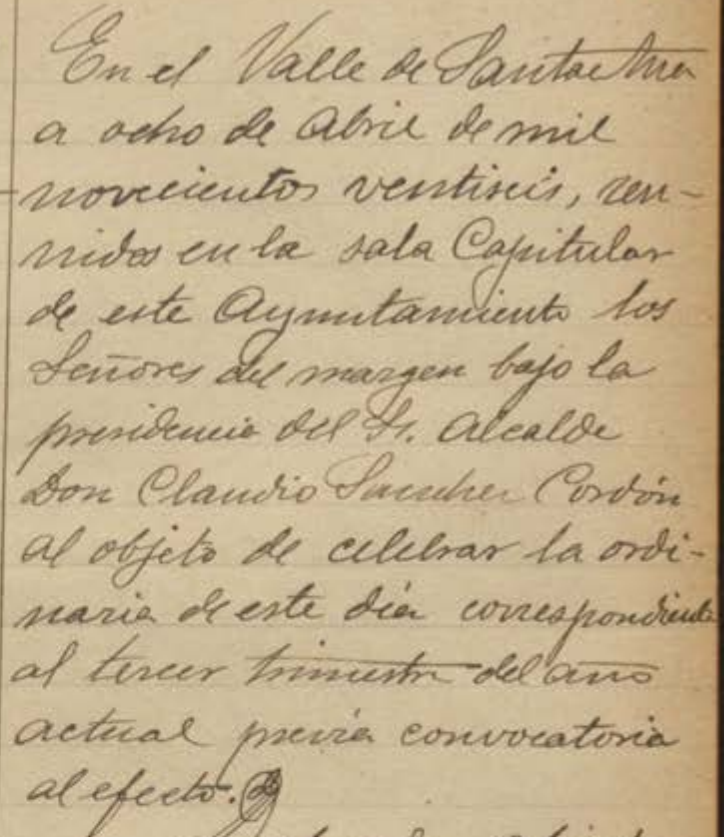 En el Valle de Santa Ana
a ocho de Abril de mil
novecientos ventiseis, reu-
nidos en la sala Capitular
de este Ayuntamiento los
Señores del margen bajo la
presidencia del Sr. Alcalde
Don Claudio Sanchez Cordón
al objeto de celebrar la ordi-
naria de este dia correspondiente
al tercer trimestre del año
actual previa convocatoria
al efecto.